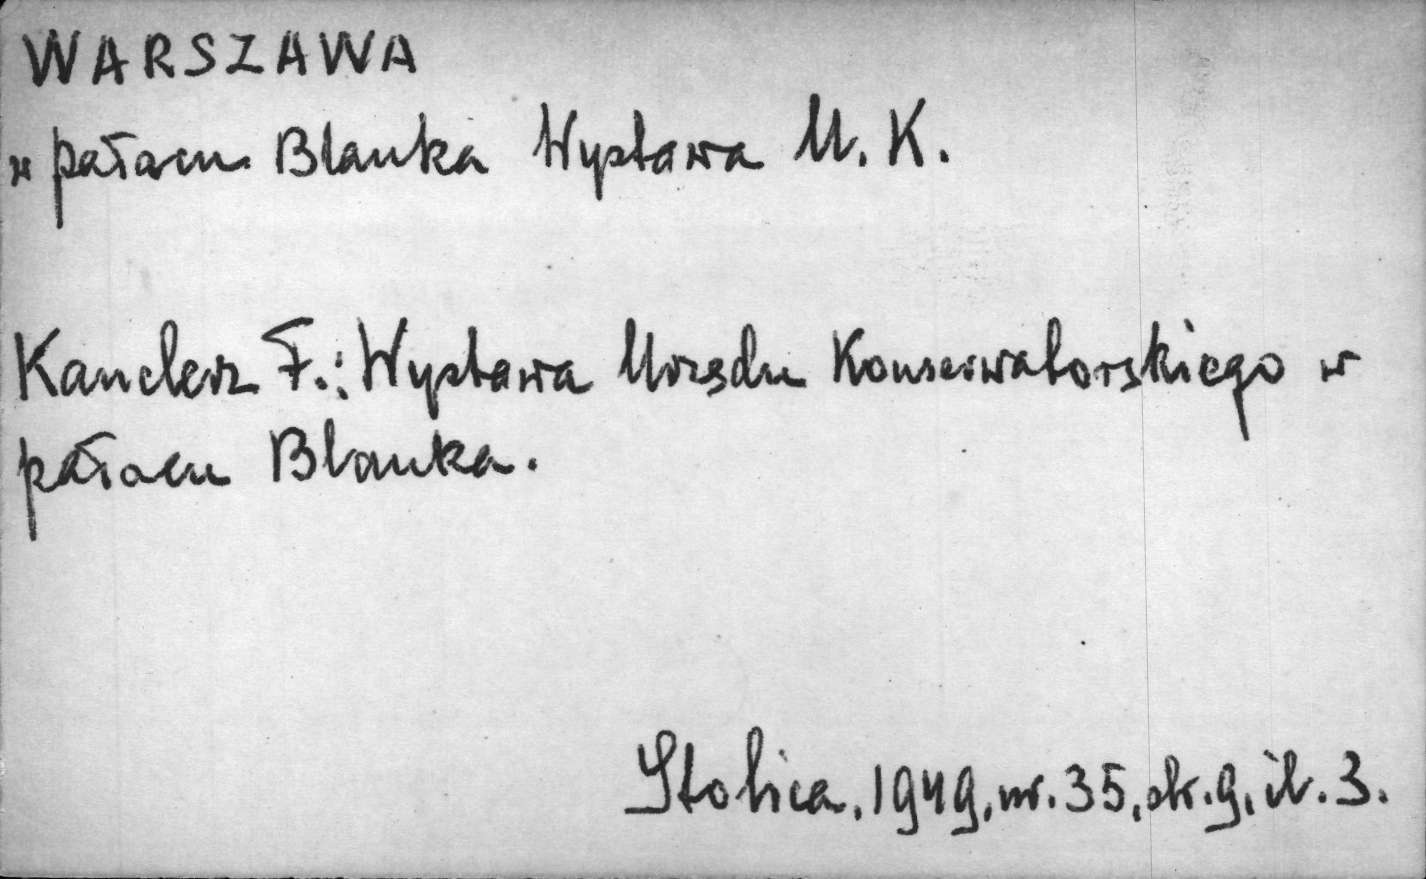 WARSZAWA
w pałacu Blanka Wystawa U. K.
Kanclerz F.: Wystawa Urzędu Konserwatorskiego w
pałacu Blanka.
Stolica, 1949, nr. 35, str. 9, il. 3.